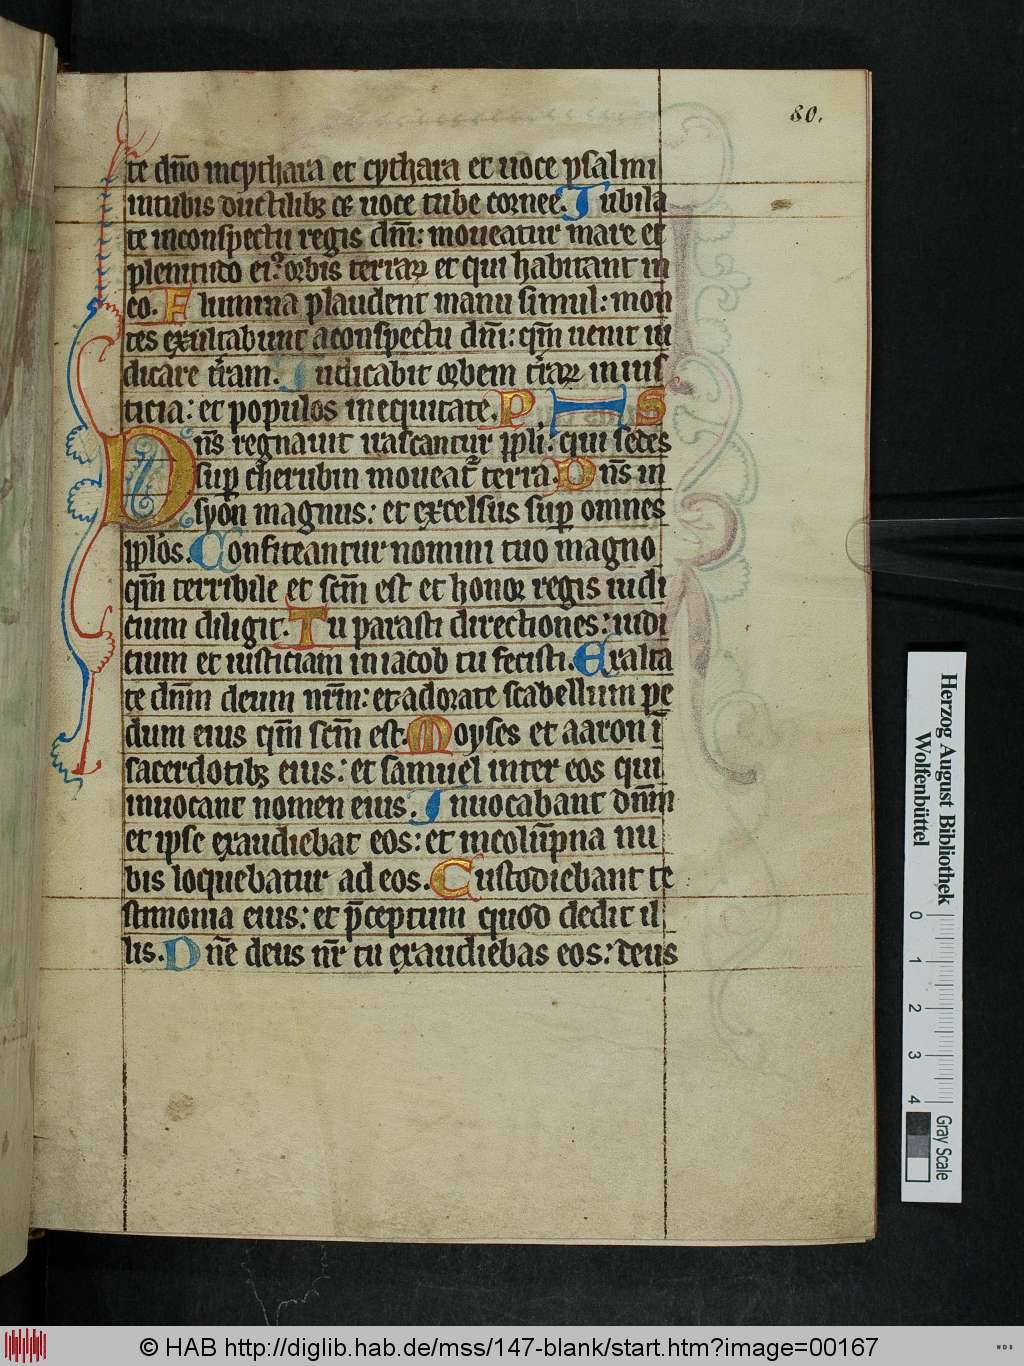 80.
te dño in cythara et cythara et uoce psalmi
in tubis ductilibꝫ et uoce tube cornee. Iubila
te in conspectu regis dñi: moueatur mare et
plenitudo eiꝰ orbis terraꝝ et qui habitant in
eo. Flumina plaudent manu simul: mon
tes exultabunt a conspectu dñi: qm̄ uenit iu
dicare t̄ram. Iudicabit orbem t̄raꝝ in ius
ticia: et populos in equitate. P S
Dñs regnauit irascantur ppli: qui sedes
sup cherubin moueat᷑ terra. Dñs in
syon magnus: et excelsus sup omnes
pplos. Confiteantur nomini tuo magno
qm̄ terribile et scm̄ est et honor regis iudi
cium diligit. Tu parasti directiones: iudi
cium et iusticiam in iacob tu fecisti. Exalta
te dñm deum nr̄m: et adorate scabellum pe
dum eius qm̄ scm̄ est. Moyses et aaron ī
sacerdotibꝫ eius: et samuel inter eos qui
inuocant nomen eius. Inuocabant dñm
et ipse exaudiebat eos: et in colūpna nu
bis loquebatur ad eos. Custodiebant te
stimonia eius: et p̄ceptum quod dedit il
lis. Dñe deus nr̄ tu exaudiebas eos: deus
Herzog August Bibliothek
Wolfenbüttel
0 1 2 3 4
Gray Scale
© HAB http://diglib.hab.de/mss/147-blank/start.htm?image=00167